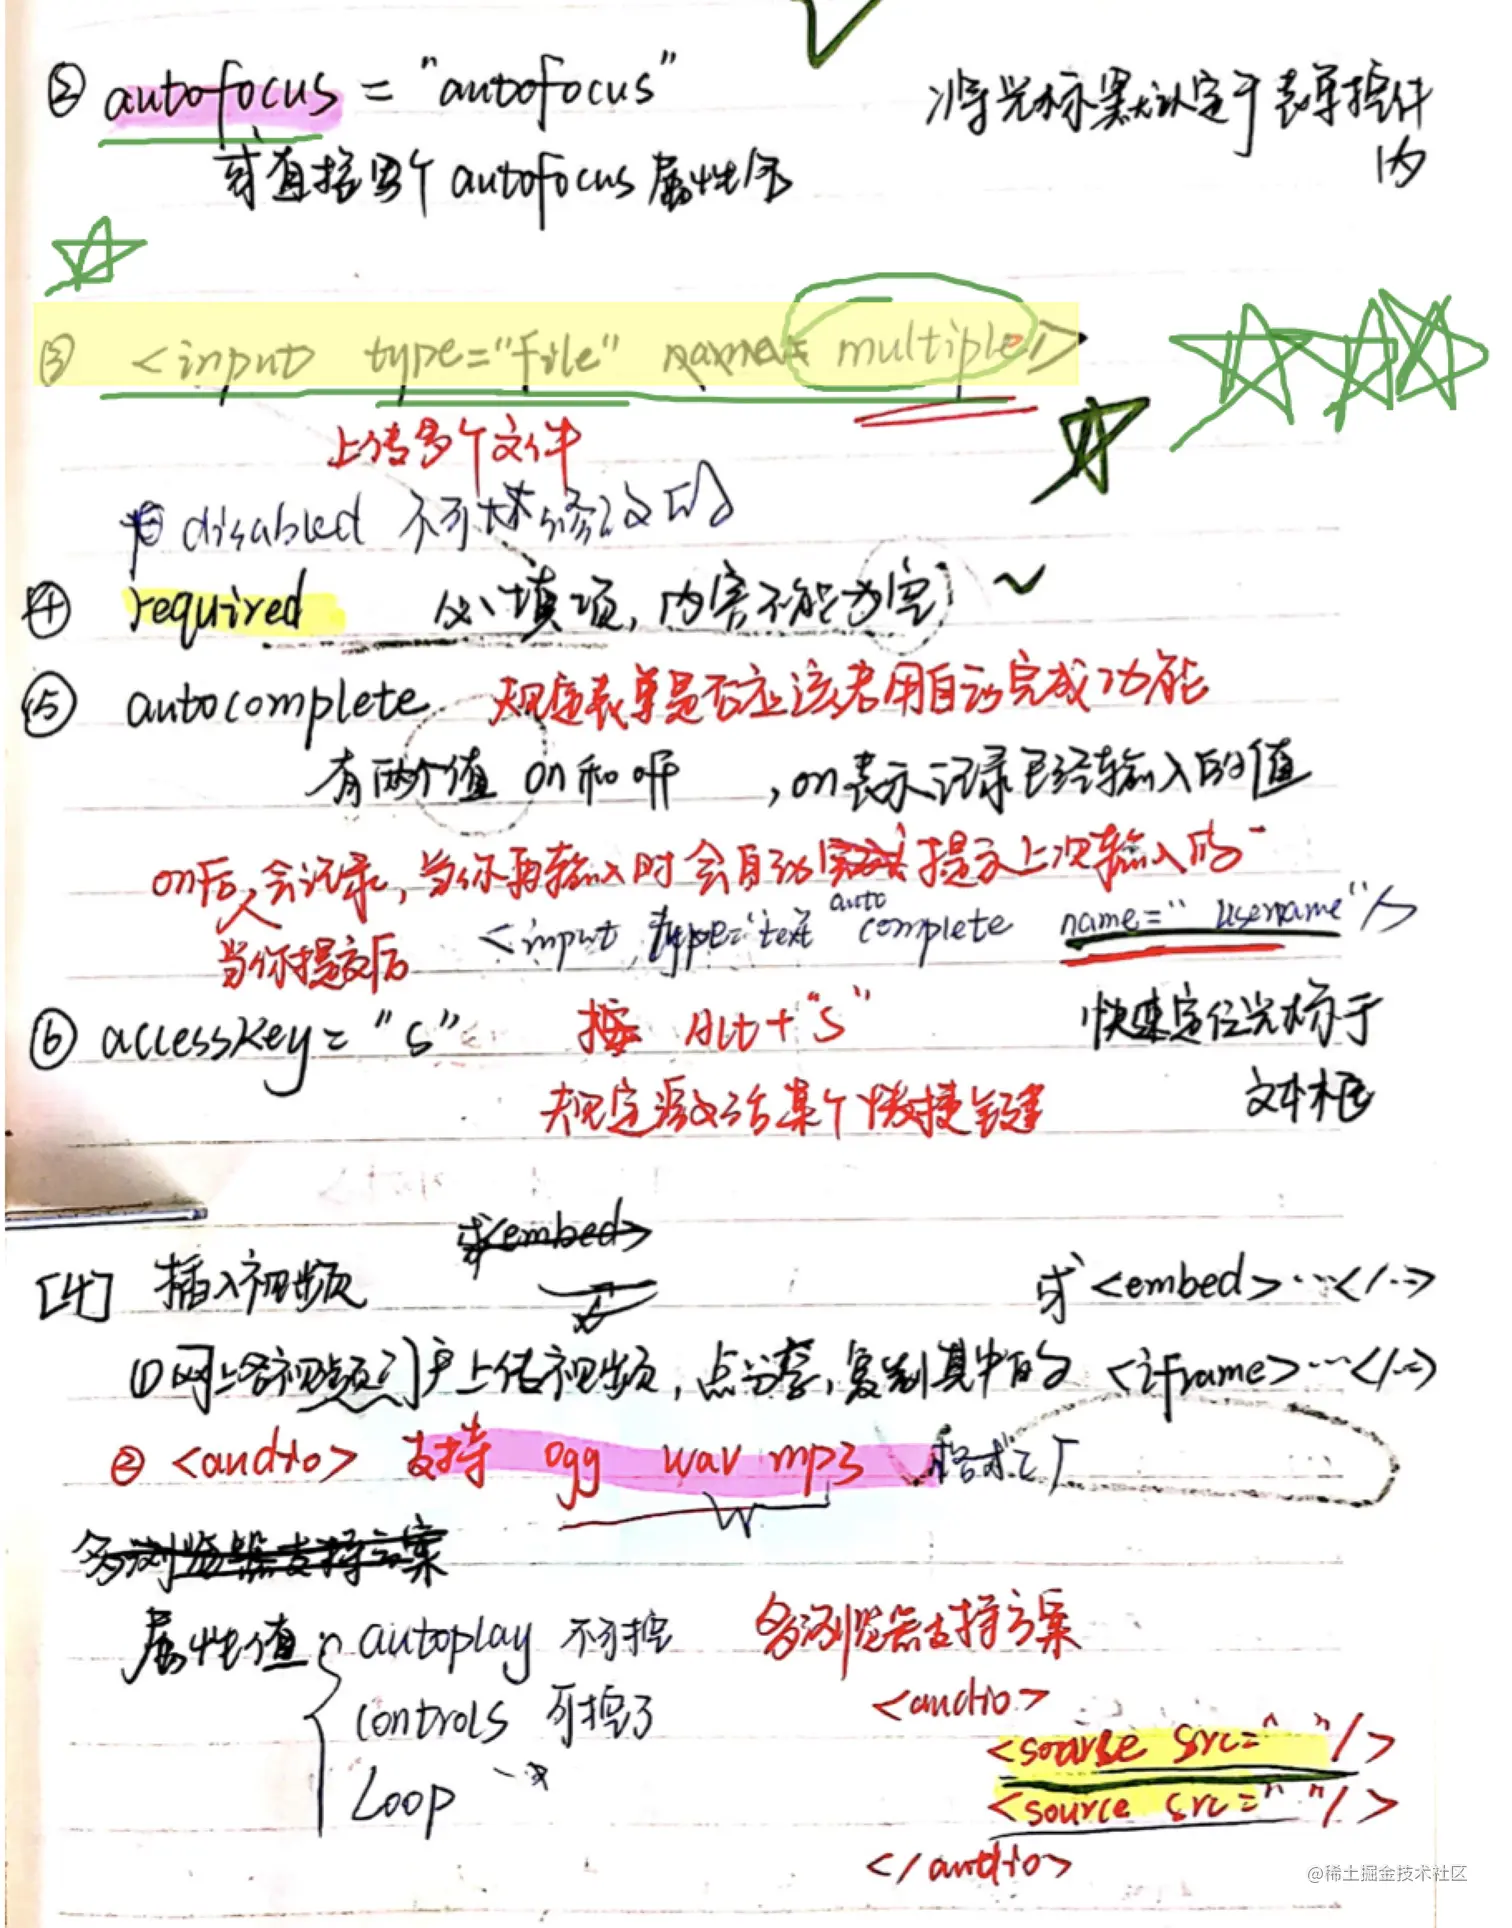 ② autofocus = "autofocus" 将光标默认定于表单控件内
或直接写个 autofocus 属性名
③ <input type="file" name= multiple/>
上传多个文件
disabled 不可
④ required 必填项,内容不能为空
⑤ autocomplete 规定表单是否应该启用自动完成功能
有两个值 on和off ,on表示记录已经输入的值
on后,会记录,当你再输入时会自动 提示上次输入的
当你提交后
<input type="text autocomplete name=" username"/>
⑥ accesskey= "s" 按 Alt+"s" 快速定位光标于文本框
规定激活某个快捷键
或<embed>
[4] 插入视频 或<embed>…</…>
①网上各视频门户上传视频,点分享,复制其中的 <iframe>…</…>
② <audio> 支持 ogg wav mp3 格式
各浏览器支持方案
属性值 autoplay 不可控 各浏览器支持方案
controls 可控
Loop
<audio>
<sourse src=" "/>
<source src=" "/>
</audio>
@稀土掘金技术社区